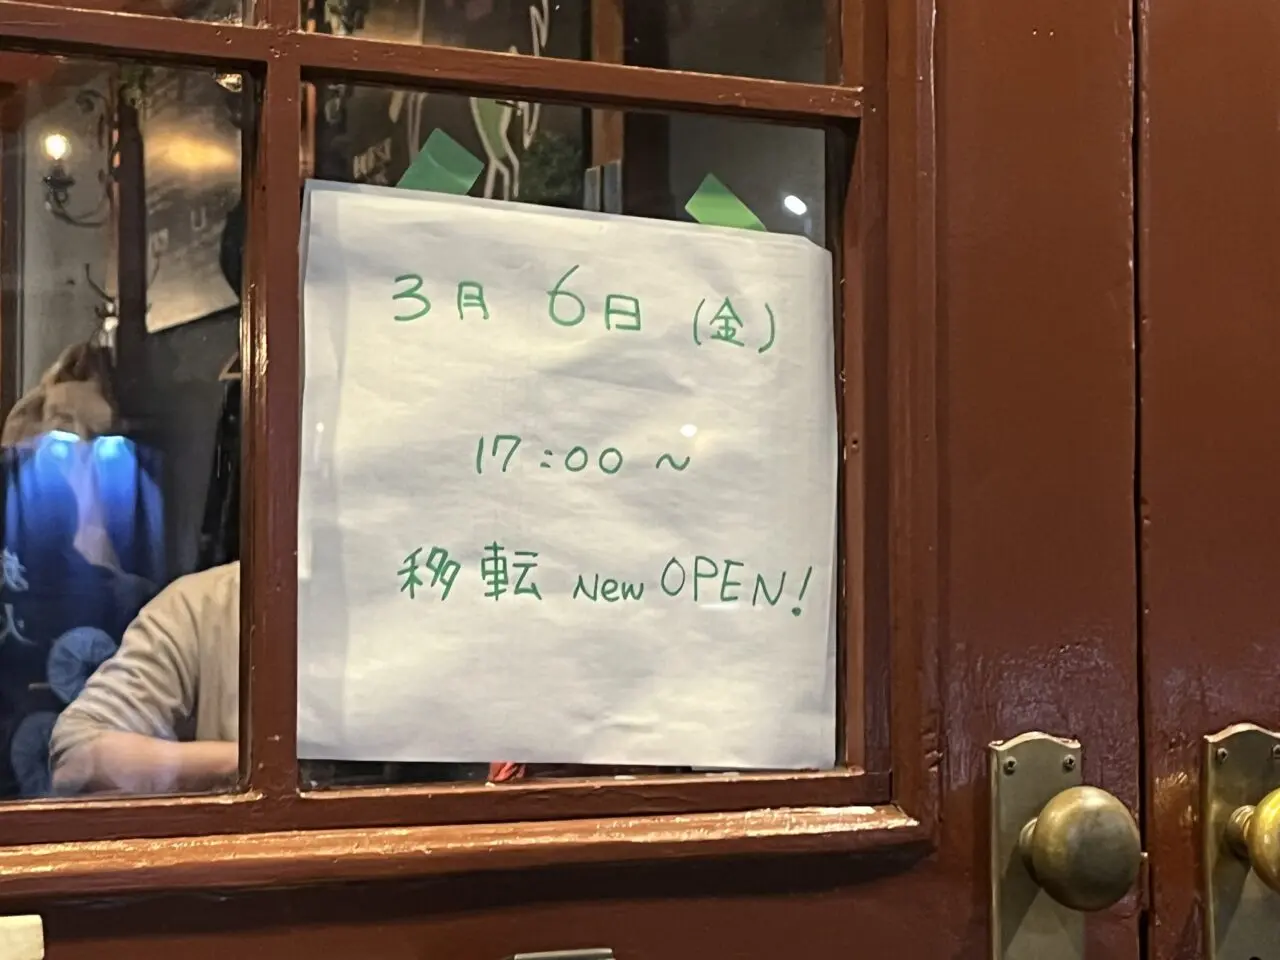 3月 6日 (金)
17:00 ~
移転 New OPEN!